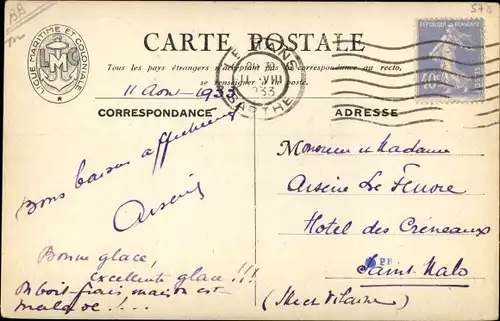 CARTE POSTALE
LIGUE MARITIME ET COLONIALE
Tous les pays étrangers n'acceptent pas la correspondance au recto,
se renseigner à la poste.
LE MANS
11 VIII
33
SARTHE
REPUBLIQUE FRANCAISE
40c
11 Aout 1933
CORRESPONDANCE
ADRESSE
Bons baisers affectueux
Arsène
Bonne glace,
excellente glace !!!
On boit frais, mais on est
malade !...
Monsieur et Madame
Arsène Le Feuvre
Hotel des Créneaux
Saint-Malo
(Ille et Vilaine)